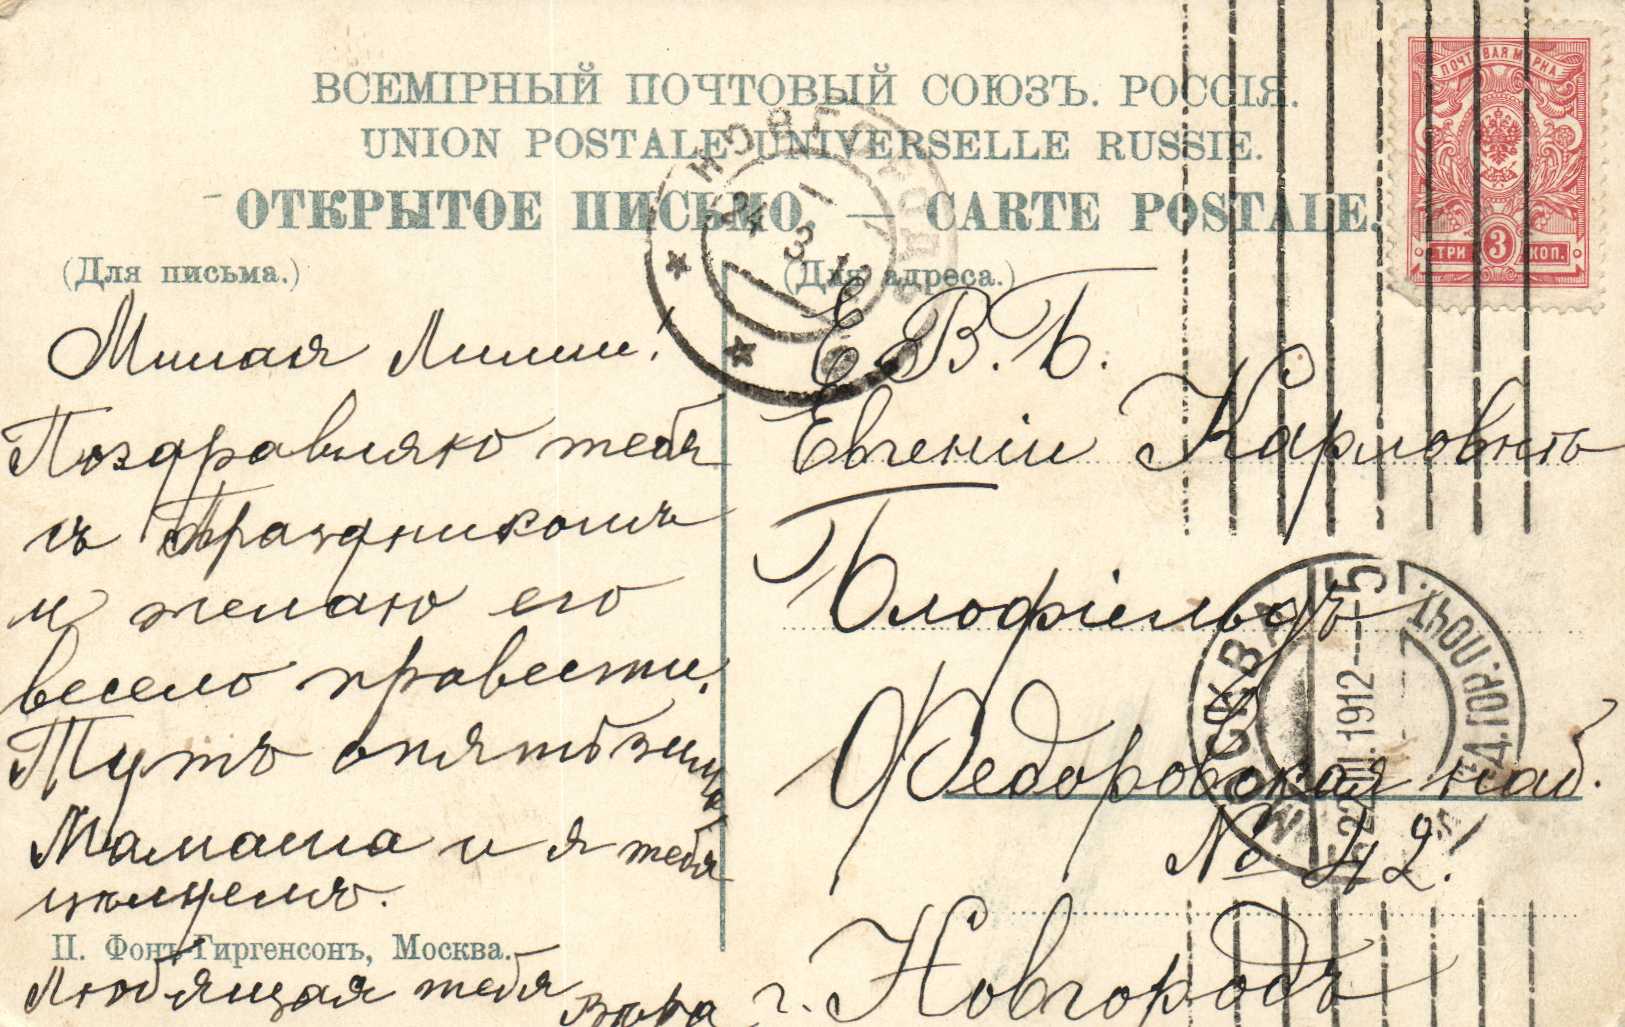 ВСЕМІРНЫЙ ПОЧТОВЫЙ СОЮЗЪ. РОССІЯ.
UNION POSTALE UNIVERSELLE RUSSIE.
ОТКРЫТОЕ ПИСЬМО — CARTE POSTALE.
ПОЧТОВАЯ МАРКА
ТРИ 3 КОП.
НОВГОРОДЪ
24 3 12
(Для письма.)
Милая Лилли!
Поздравляю тебя
съ Праздникомъ
и желаю его
весело провести.
Тутъ опять зима!
Мамаша и я тебя
цѣлуемъ.
П. Фонъ-Гиргенсонъ, Москва.
Любящая тебя
Вѣра
(Для адреса.)
Е. В. Б.
Евгеніи Карловнѣ
Блофіельдъ
МОСКВА
22.III.1912
ГОР. ПОЧТ.
Федоровская наб.
№ 42!
г. Новгородъ